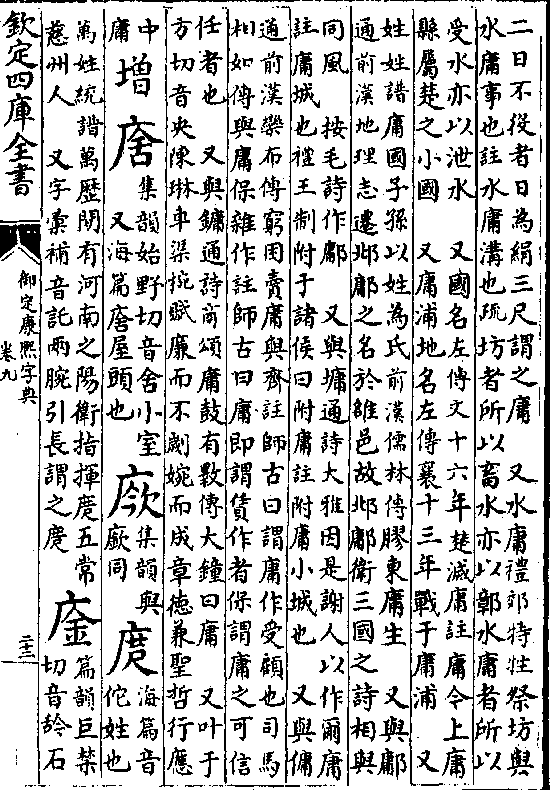 二日不役者日為絹三尺謂之庸　又水庸禮郊特牲祭坊與
水庸事也註水庸溝也疏坊者所以畜水亦以鄣水庸者所以
受水亦以泄水　又國名左傳文十六年楚滅庸註庸今上庸
縣屬楚之小國　又庸浦地名左傳襄十三年戰于庸浦　又
姓姓譜庸國子孫以姓為氏前漢儒林傳膠東庸生　又與鄘
通前漢地理志遷邶鄘之名於雒邑故邶鄘衛三國之詩相與
同風　按毛詩作鄘　又與墉通詩大雅因是謝人以作爾庸
註庸城也禮王制附于諸侯曰附庸註附庸小城也　又與傭
通前漢欒布傳窮困賣庸與齊註師古曰謂庸作受顧也司馬
相如傳與庸保雜作註師古曰庸即謂賃作者保謂庸之可信
任者也　又與鏞通詩商頌庸鼓有斁傳大鐘曰庸　又叶于
方切音央陳琳車渠椀賦廉而不劌婉而成章德兼聖哲行應
中庸　增　集韻始野切音舍小室又海篇屋頭也　集韻與廞同　庹　海篇音佗姓也
萬姓統譜萬歷間有河南之陽衛指揮庹五常
慈州人　又字彙補音託兩腕引長謂之庹　篇韻巨禁切音　石
欽定四庫全書
御定康熙字典
卷九
二十三